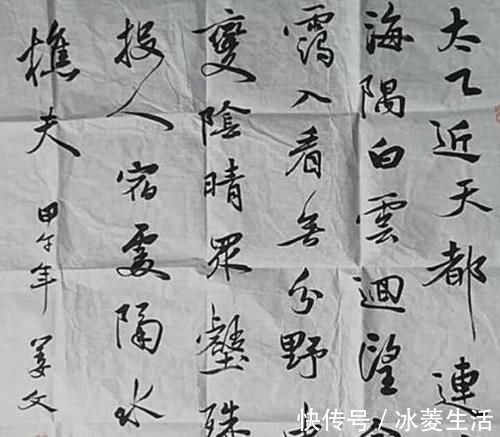 太乙近天都連
海隅白雲迴望
靄入看无分野
變陰晴眾壑殊
投人宿處隔水
樵夫
甲午年 姜文
快传号/冰菱生活